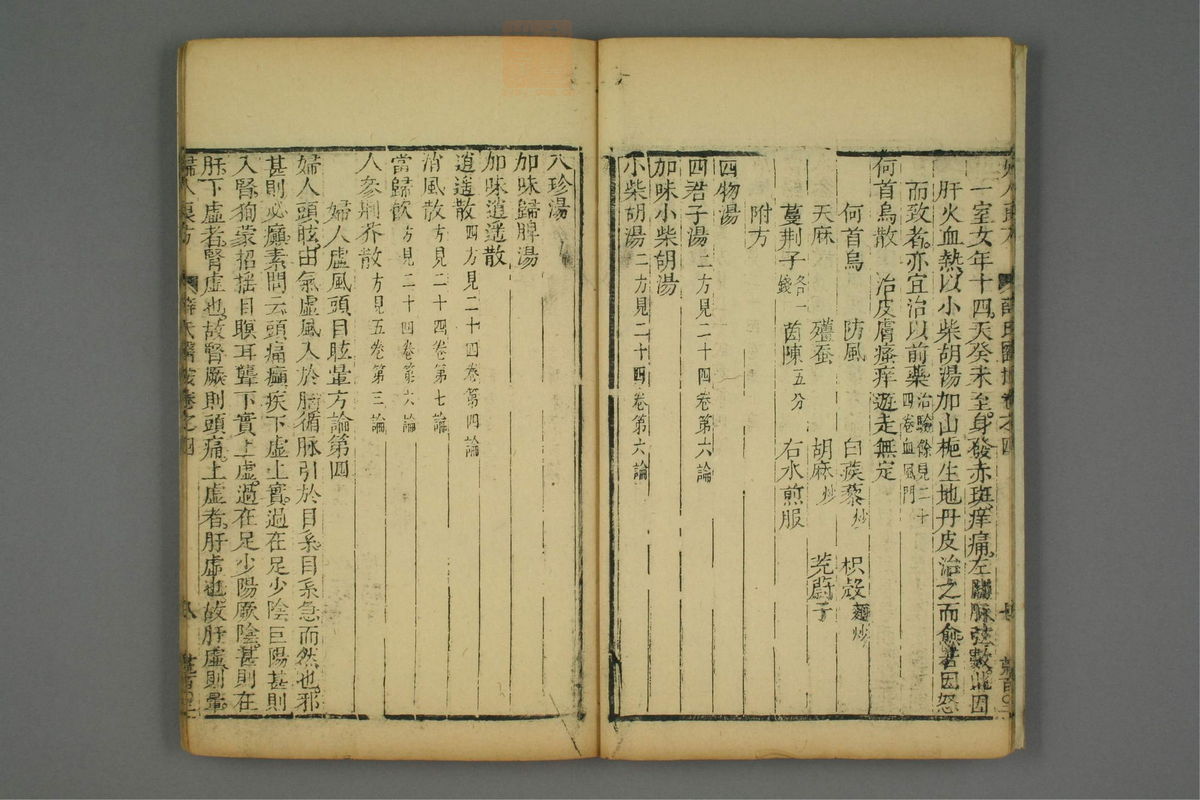 一室女年十四天癸未至身發赤斑痒痛左關脉弦數此因
肝火血熱以小柴胡湯加山梔生地丹皮治之而愈若因怒
而致者亦宜治以前藥治驗餘見二十四卷血風門
何首烏散 治皮膚瘙痒遊走無定
何首烏 防風 白蒺藜炒 枳殼麩炒
天麻 殭蚕 胡麻炒 茺蔚子
蔓荆子各一錢 茵陳五分 右水煎服
附方
四物湯
四君子湯二方見二十四卷第六論
加味小柴胡湯
小柴胡湯二方見二十四卷第六論
八珍湯
加味歸脾湯
加味逍遥散
逍遥散四方見二十四卷第四論
消風散方見二十四卷第七論
當歸飲方見二十四卷第六論
人參荆芥散方見五卷第三論
婦人虛風頭目眩暈方論第四
婦人頭眩由氣虛風入於腦循脉引於目系目系急而然也邪
甚則必癲素問云頭痛癲疾下虛上實過在足少陰巨陽甚則
入腎狥蒙招揺目瞑耳聾下實上虛過在足少陽厥陰甚則在
肝下虛者腎虛也故腎厥則頭痛上虛者肝虛也故肝虛則暈
婦人良方 薛氏醫按卷之四